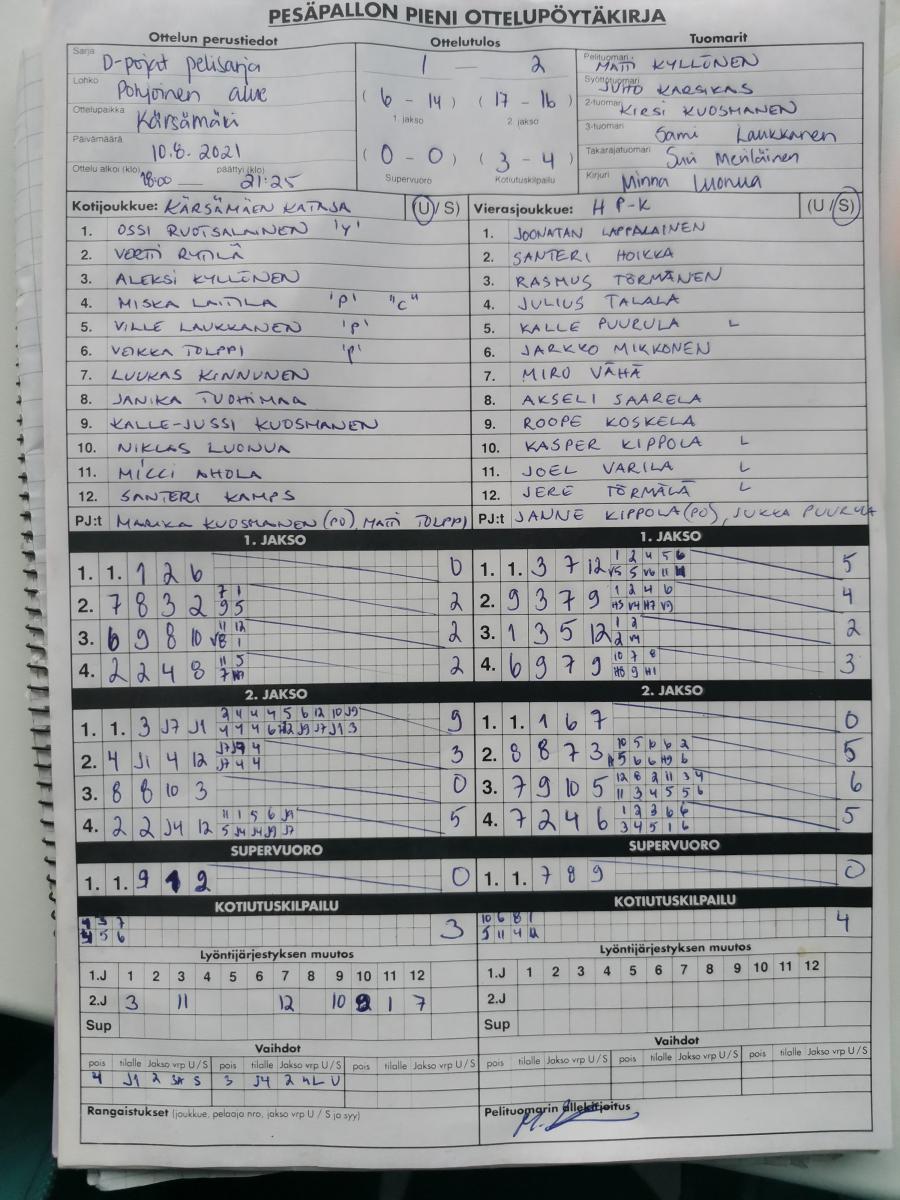 PESÄPALLON PIENI OTTELUPÖYTÄKIRJA
Ottelun perustiedot
Ottelutulos
Tuomarit
Sarja D-pojat pelisarja
Lohko Pohjoinen alue
Ottelupaikka Kärsämäki
Päivämäärä 10.8.2021
Ottelu alkoi (klo) päättyi (klo)
18:00 — 21:25
1 — 2
( 6 - 14 ) ( 17 - 16 )
1. jakso 2. jakso
( 0 - 0 ) ( 3 - 4 )
Supervuoro Kotiutuskilpailu
Pelituomari MATTI KYLLÖNEN
Syöttötuomari JUHO KARSIKAS
2-tuomari KIRSI KUOSMANEN
3-tuomari Sami Laukkanen
Takarajatuomari Suvi Meriläinen
Kirjuri Minna Luonua
Kotijoukkue: KÄRSÄMÄEN KATAJA (U / S)
1. OSSI RUOTSALAINEN 'Y'
2. VERTTI RYTILÄ
3. ALEKSI KYLLÖNEN
4. MISKA LAITILA 'P' "C"
5. VILLE LAUKKANEN 'P'
6. VEIKKA TOLPPI 'P'
7. LUUKAS KINNUNEN
8. JANIKA TUOHIMAA
9. KALLE-JUSSI KUOSMANEN
10. NIKLAS LUONUA
11. MICCI AHOLA
12. SANTERI KAMPS
PJ:t MARIKA KUOSMANEN (PÖ), MATTI TOLPPI
Vierasjoukkue: HP-K (U / S)
1. JOONATAN LAPPALAINEN
2. SANTERI HOIKKA
3. RASMUS TÖRMÄNEN
4. JULIUS TALALA
5. KALLE PUURULA L
6. JARKKO MIKKONEN
7. MIRO VÄHÄ
8. AKSELI SAARELA
9. ROOPE KOSKELA
10. KASPER KIPPOLA L
11. JOEL VARILA L
12. JERE TÖRMÄLÄ L
PJ:t JANNE KIPPOLA (PÖ), JUKKA PUURULA
1. JAKSO
1. 1. 1 2 6 0
2. 7 8 3 2 7 1 2
9 5
3. 6 9 8 10 11 12 2
V8 1
4. 2 2 4 8 11 5 2
1. JAKSO
1. 1. 3 7 12 1 2 4 5 6 5
V5 5 V6 11
2. 9 3 7 9 1 2 4 6 4
H3 V4 H7 V9
3. 1 3 5 12 1 2 2
2 V4
4. 6 9 7 9 10 7 8 3
H8 9 H1
2. JAKSO
1. 1. 3 J7 J1 2 4 4 4 5 6 12 10 J9 9
2. 4 J1 4 12 3
J7 4 4
3. 8 8 10 3 0
4. 2 2 J4 12 11 1 5 6 J9 5
5 J4 J4 J9 J7
2. JAKSO
1. 1. 1 6 7 0
2. 8 8 7 3 10 5 10 6 2 5
3. 7 9 10 5 12 8 2 11 3 4 6
11 3 4 5 5 6
4. 7 2 4 6 1 2 3 6 6 5
3 4 5 1 6
SUPERVUORO
1. 1. 9 1 2 0
SUPERVUORO
1. 1. 7 8 9 0
KOTIUTUSKILPAILU
4 3 7 3
5 6
KOTIUTUSKILPAILU
10 6 8 1 4
5 11 4 12
Lyöntijärjestyksen muutos
1.J 1 2 3 4 5 6 7 8 9 10 11 12
2.J 3 11 12 10 2 1 7
Sup
Lyöntijärjestyksen muutos
1.J 1 2 3 4 5 6 7 8 9 10 11 12
2.J
Sup
Vaihdot
pois tilalle Jakso vrp U / S pois tilalle Jakso vrp U / S pois tilalle Jakso vrp U / S
4 J1 2 3A S 3 J4 2 4L U
Vaihdot
pois tilalle Jakso vrp U / S pois tilalle Jakso vrp U / S pois tilalle Jakso vrp U / S
Rangaistukset (joukkue, pelaaja nro, jakso vrp U / S ja syy)
Pelituomarin allekirjoitus